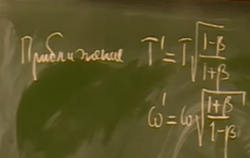 Приближение T' = T√((1-β)/(1+β))
ω' = ω√((1+β)/(1-β))